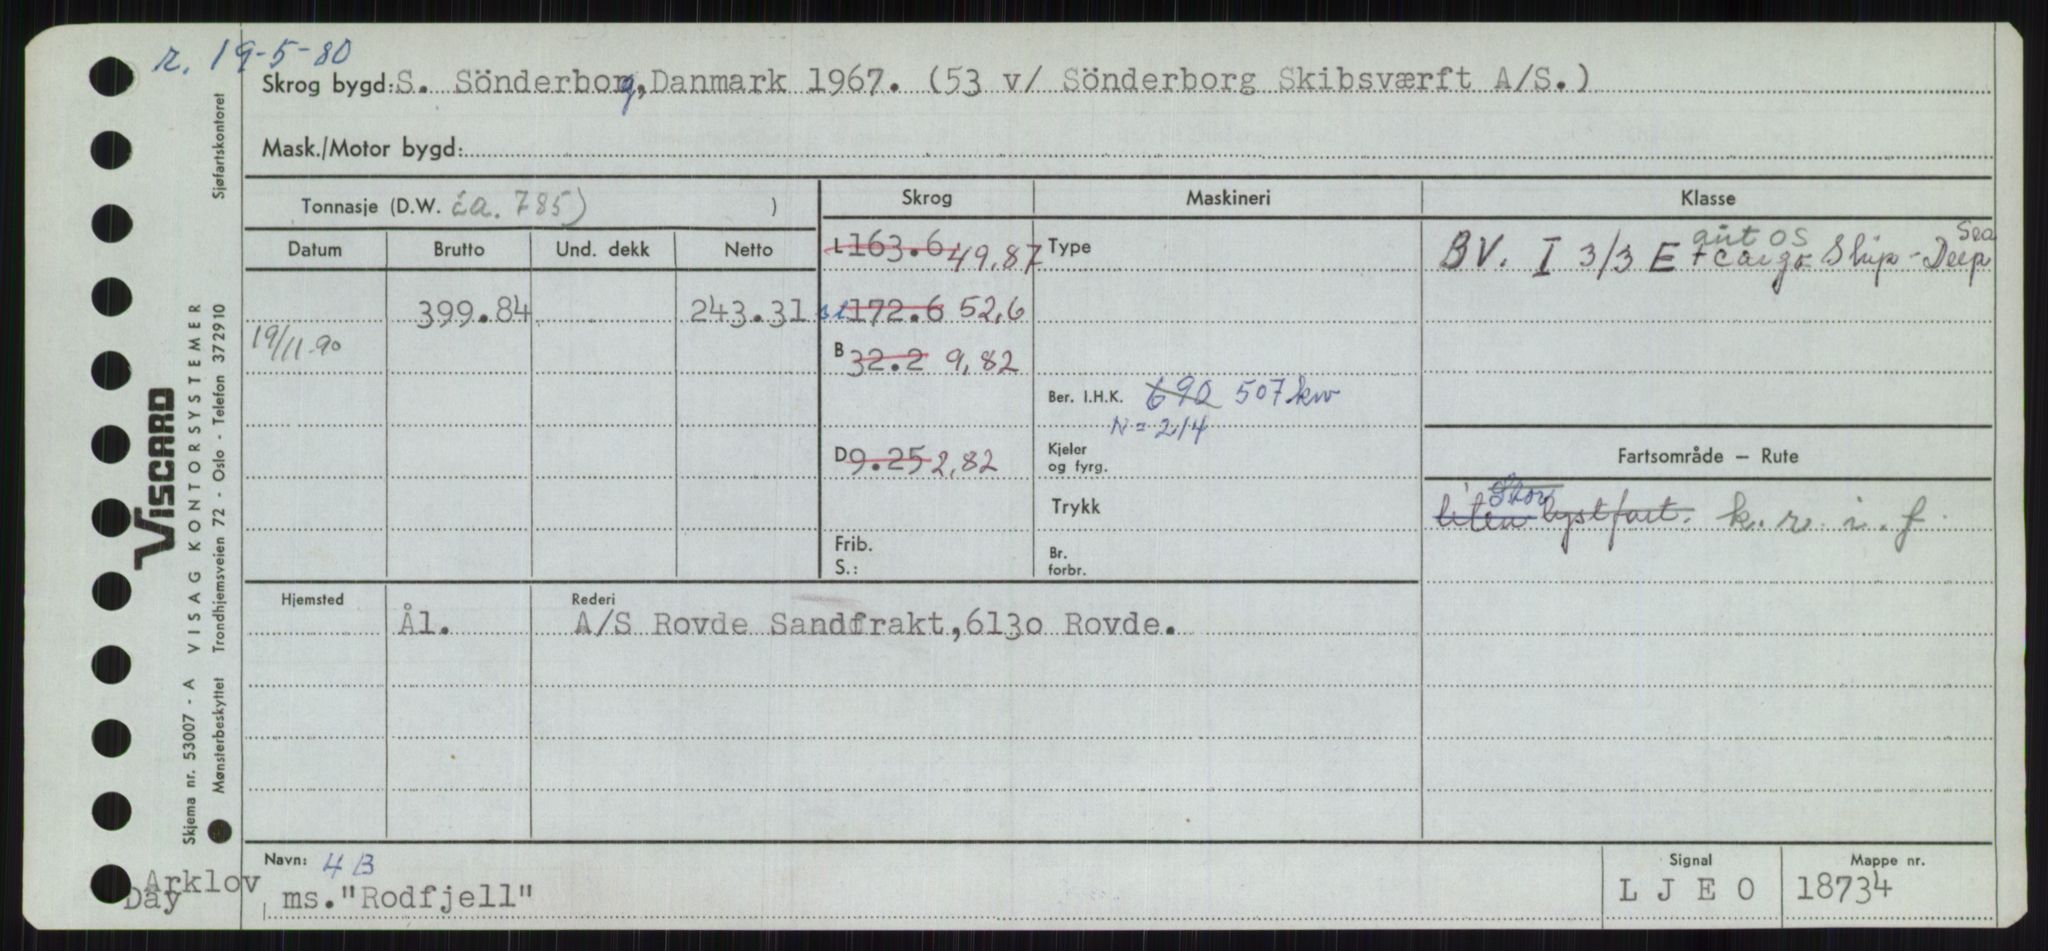 r. 19-5-80
Skrog bygd: S. Sönderborg, Danmark 1967. (53 v/ Sönderborg Skibsværft A/S.)
Mask./Motor bygd:
Tonnasje (D.W. ca. 785) )
Skrog Maskineri Klasse
Datum Brutto Und. dekk Netto
L 163.6 49,87 Type
BV. I 3/3 E + cargo Ship - Deep Sea
aut os
399.84 243.31 172.6 52,6
19/11-90
B 32.2 9,82
Ber. I.H.K. 690 507 kw
N = 214
D 9.25 2,82 Kjeler og fyrg.
Fartsområde – Rute
Stor
liten kystfart. k. r. i. f.
Trykk
Frib.
S.:
Br. forbr.
Hjemsted Rederi
Ål. A/S Rovde Sandfrakt, 6130 Rovde.
Navn: 4B Signal Mappe nr.
Arklov
Day ms. "Rodfjell" L J E O 18734
VISCARD
Skjema nr. 53007 - A VISAG KONTORSYSTEMER Sjøfartskontoret
Mønsterbeskyttet Trondhjemsveien 72 - Oslo - Telefon 372910